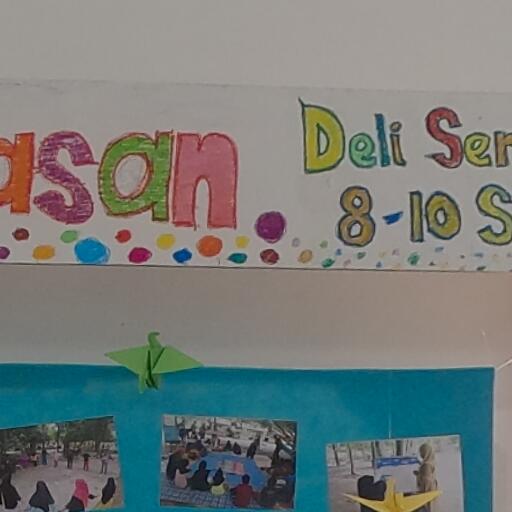 asan
Deli Ser
8-10 S